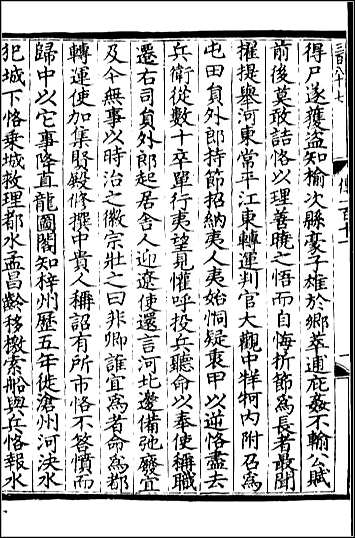 得尸遂獲盜知榆次縣豪子雄於鄉萃逋庇姦不輸公賦
前後莫敢詰恪以理善曉之悟而自悔折節為長者最聞
擢提舉河東常平江東轉運判官大觀中牂柯內附召為
屯田負外郎持節招納夷人夷始恫疑衷甲以逆恪盡去
兵衛從數十卒單行夷望見懽呼投兵聽命以奉使稱職
遷右司負外郎起居舍人迎遼使還言河北邊備弛廢宜
及今無事以時治之徽宗壯之曰非卿誰宜為者命為都
轉運使加集賢殿修撰中貴人稱詔有所市恪不荅憤而
歸中以它事降直龍圖閣知梓州歷五年徙滄州河決水
犯城下恪乗城救理都水孟昌齡移檄索船與兵恪報水